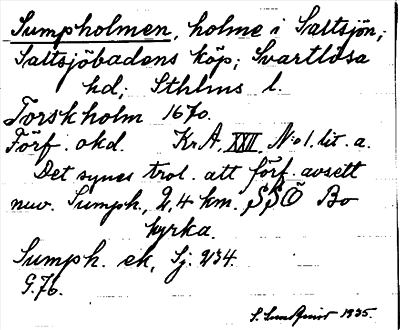 Sumpholmen, holme i Saltsjön;
Saltsjöbadens köp; Svartlösa
hd; Sthlms l.
Torskholm 1670.
Förf. okd. KrA. XXII, N:o 1. lit. a.
Det synes trol. att förf. avsett
nuv. Sumph., 2,4 km. SSÖ Bo
kyrka.
Sumph. ek, Sj. 234.
G.76.
S. Lundqvist 1935.